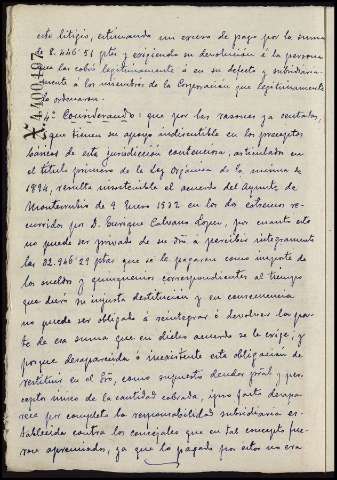 este litigio, estimando un exceso de pago por la suma
de 8.446'51 ptas y exigiendo su devolución á la persona
que las cobró legítimamente ó en su defecto y subsidiaria-
mente á los miembros de la Corporación que legítimamente
lo ordenaron.
4º Considerando: que por las razones ya sentadas,
que tienen su apoyo indiscutible en los preceptos
básicos de esta jurisdicción contenciosa, articulados en
el título primero de la Ley Orgánica de la misma de
1894, resulta insostenible el acuerdo del Ayunto de
Monterrubio de 9 Enero 1932 en los dos extremos re-
curridos por D. Enrique Calvano Lopez, por cuanto este
no puede ser privado de su dro á percibir integramente
las 32.946'29 ptas que se le pagaron como importe de
los sueldos y quinquenios correspondientes al tiempo
que duró su injusta destitución y en consecuencia
no puede ser obligado á reintegrar ó devolver la par-
te de esa suma que en dicho acuerdo se le exige; y
porque desaparecida ó inexistente esta obligación de
restituir en el Sr, como supuesto deudor pral y per-
ceptor único de la cantidad cobrada, ipso facto desapa-
rece por completo la responsabilidad subsidiaria es-
tablecida contra los concejales que en tal concepto fue-
ron apremiados, ya que lo pagado por estos no era